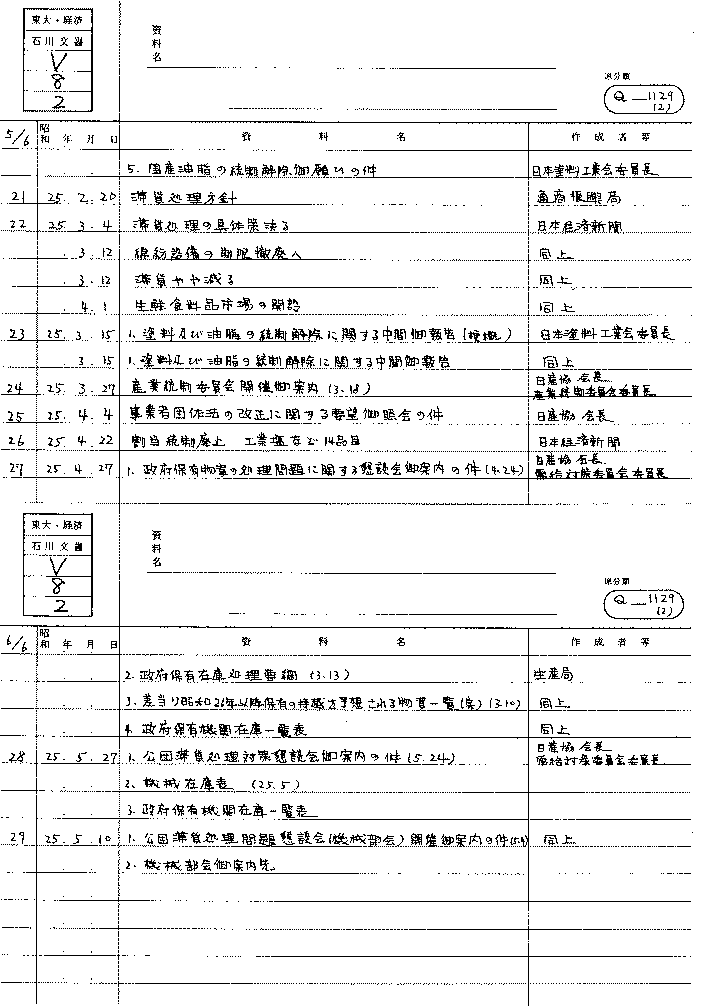 東大・経済
石川文書
V
8
2
資料名
原分類
Q—1129
(2)
5/6 昭和 年 月 日 資料名 作成者等
5. 国産油脂の統制解除御願ひの件 日本塗料工業会委員長
21 25. 2. 20 滞貨処理方針 通商振興局
22 25 3. 4 滞貨処理の具体策決る 日本経済新聞
. 3. 12 綿紡設備の制限撤廃へ 同上
. 3. 12 滞貨やや減る 同上
. 4. 1 生鮮食料品市場の開設 同上
23 25. 3. 15 1. 塗料及び油脂の統制解除に関する中間御報告 日本塗料工業会委員長
3. 15 1. 塗料及び油脂の統制解除に関する中間御報告 同上
24 25. 3. 27 産業統制委員会開催御案内 (3.18) 日産協会長 産業統制委員会委員長
25 25. 4. 4 事業者団体法の改正に関する要望御照会の件 日産協会長
26 25. 4. 22 割当統制廃止 工業塩など14品目 日本経済新聞
27 25. 4. 27 1. 政府保有物資の処理問題に関する懇談会御案内の件 (4.24) 日産協会長 需給対策委員会委員長
東大・経済
石川文書
V
8
2
資料名
原分類
Q—1129
(2)
6/6 昭和 年 月 日 資料名 作成者等
2. 政府保有在庫処理要綱 (3.13) 生産局
3. 差当り昭和26年以降保有の持越を予想される物資一覧(表) (3.10) 同上
4. 政府保有機関在庫一覧表 同上
28 25. 5. 27 1. 公団滞貨処理対策懇談会御案内の件 (5.24) 日産協会長 需給対策委員会委員長
2. 機械在庫表 (25.5)
3. 政府保有機関在庫一覧表
29 25. 5. 10 1. 公団滞貨処理問題懇談会(機械部会)開催御案内の件 同上
2. 機械部会御案内先